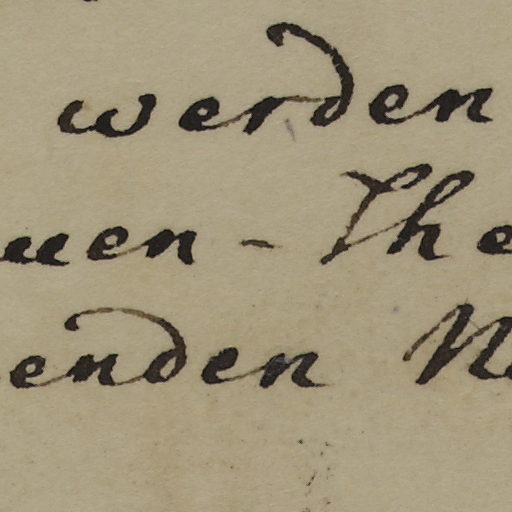 werden
uen - The
enden N